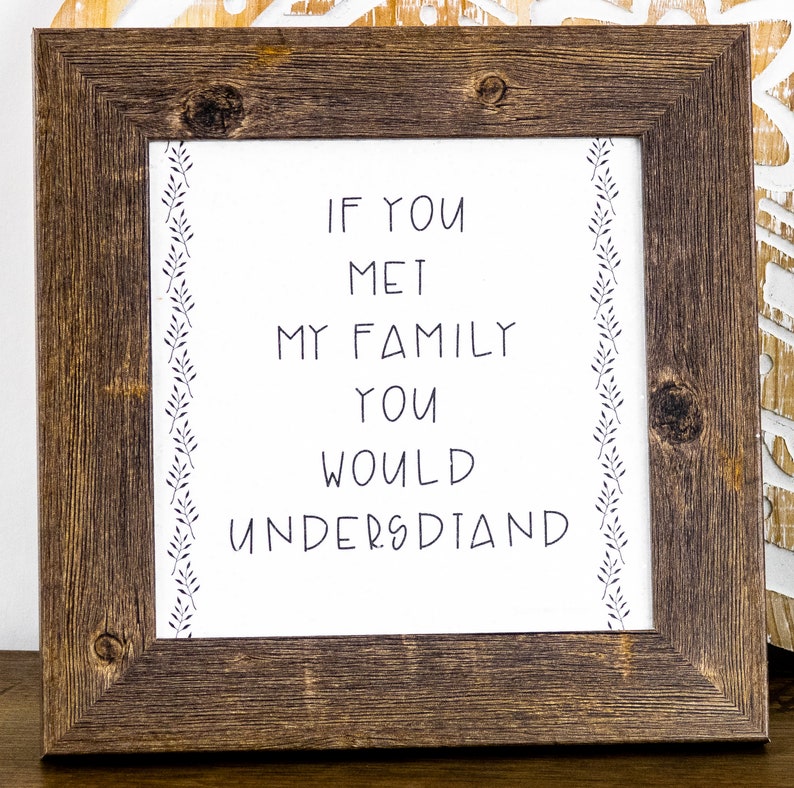 IF YOU
MET
MY FAMILY
YOU
WOULD
UNDERSDIAND